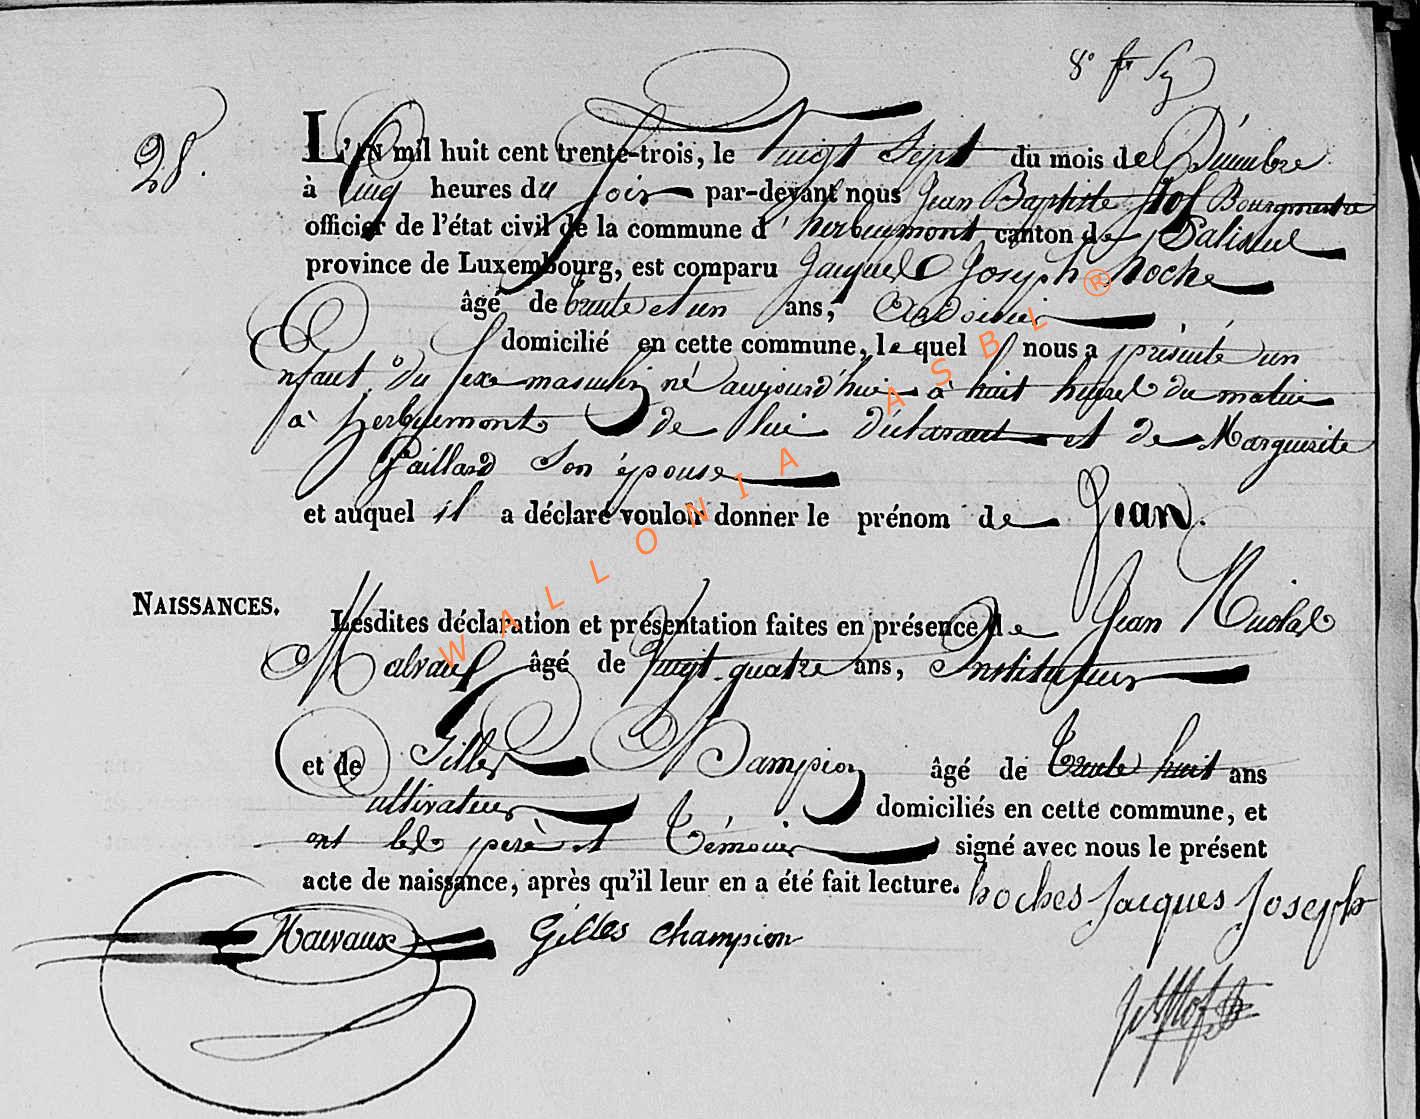 8° fr Sy
28.
L'AN mil huit cent trente-trois, le Vingt Sept du mois de Décembre
à cinq heures du soir par-devant nous Jean Baptiste Hof Bourgmestre
officier de l'état civil de la commune d'herbeumont canton de Paliseul
province de Luxembourg, est comparu Jacques Joseph hoche
âgé de trente et un ans, Ardoisier
domicilié en cette commune, lequel nous a présenté un
Enfant du sexe masculin né aujourd'hui à huit heures du matin
à herbeumont de lui déclarant et de Marguerite
Gaillard son épouse
et auquel il a déclaré vouloir donner le prénom de Jean.
NAISSANCES.
Lesdites déclaration et présentation faites en présence de Jean Nicolas
Malvaux âgé de Vingt-quatre ans, Instituteur
et de Gilles Champion âgé de trente huit ans
Cultivateur domiciliés en cette commune, et
ont les père et témoins signé avec nous le présent
acte de naissance, après qu'il leur en a été fait lecture.
hoches Jacques Joseph
Malvaux Gilles Champion
WALLONIA ASBL ®